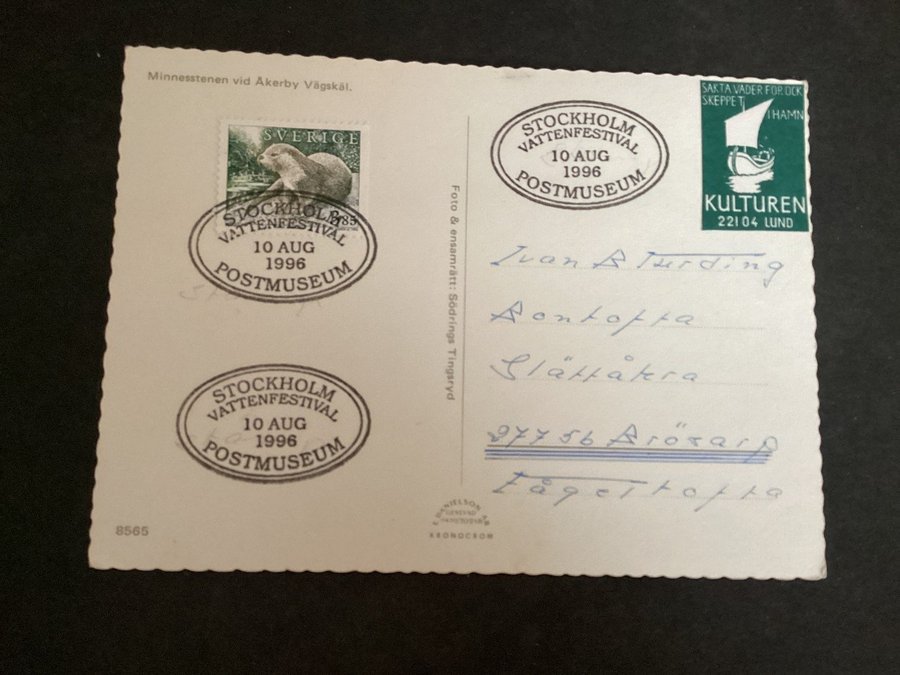 Minnesstenen vid Åkerby Vägskäl.
SVERIGE
3.85
STOCKHOLM
VATTENFESTIVAL
10 AUG
1996
POSTMUSEUM
STOCKHOLM
VATTENFESTIVAL
10 AUG
1996
POSTMUSEUM
8565
Foto & ensamrätt: Södrings Tingsryd
E. DANIELSON AB
KRONOCROM
STOCKHOLM
VATTENFESTIVAL
10 AUG
1996
POSTMUSEUM
SAKTA VÄDER FÖR OCK
SKEPPET I HAMN
KULTUREN
221 04 LUND
Ivan B Turding
Bontofta
Slättåkra
27756 Brösarp
Fågeltofta